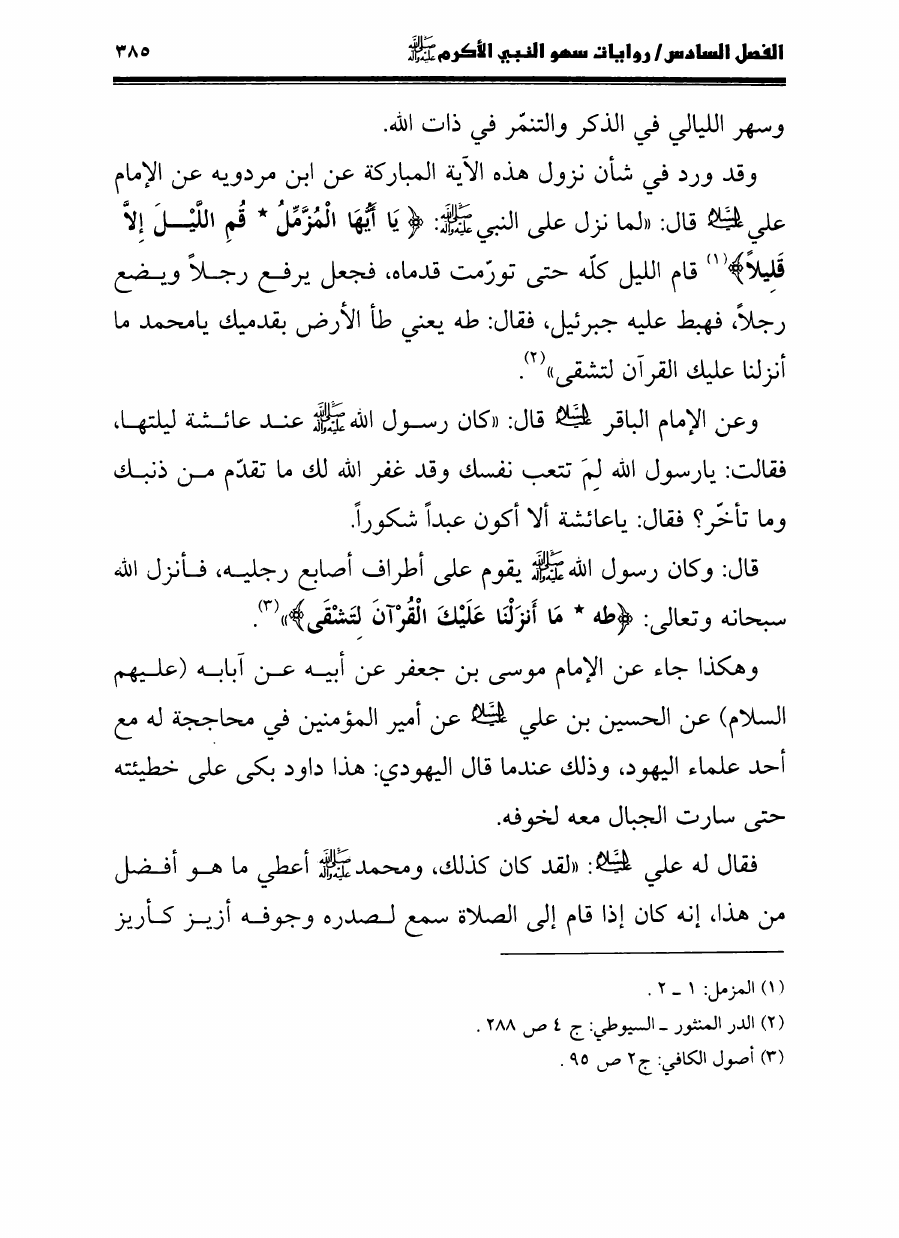 الفصل السادس/ روايات سهو النبي الأكرم ﷺ ٣٨٥
وسهر الليالي في الذكر والتنمّر في ذات الله.
وقد ورد في شأن نزول هذه الآية المباركة عن ابن مردويه عن الإمام
علي عليه السلام قال: «لما نزل على النبي ﷺ: ﴿يَا أَيُّهَا الْمُزَّمِّلُ * قُمِ اللَّيْـلَ إِلاَّ
قَلِيلاً﴾(١) قام الليل كلّه حتى تورّمت قدماه، فجعل يرفـع رجـلاً ويـضع
رجلاً، فهبط عليه جبرئيل، فقال: طه يعني طأ الأرض بقدميك يامحمد ما
أنزلنا عليك القرآن لتشقى»(٢).
وعن الإمام الباقر عليه السلام قال: «كان رسـول الله ﷺ عنـد عائـشة ليلتهـا،
فقالت: يارسول الله لِمَ تتعب نفسك وقد غفر الله لك ما تقدّم مـن ذنبـك
وما تأخّر؟ فقال: ياعائشة ألا أكون عبداً شكوراً.
قال: وكان رسول الله ﷺ يقوم على أطراف أصابع رجليـه، فـأنزل الله
سبحانه وتعالى: ﴿طه * مَا أَنزَلْنَا عَلَيْكَ الْقُرْآنَ لِتَشْقَى﴾»(٣).
وهكذا جاء عن الإمام موسى بن جعفر عن أبيـه عـن آبابـه (علـيهم
السلام) عن الحسين بن علي عليه السلام عن أمير المؤمنين في محاججة له مع
أحد علماء اليهود، وذلك عندما قال اليهودي: هذا داود بكى على خطيئته
حتى سارت الجبال معه لخوفه.
فقال له علي عليه السلام: «لقد كان كذلك، ومحمد ﷺ أعطي ما هـو أفـضل
من هذا، إنه كان إذا قام إلى الصلاة سمع لـصدره وجوفـه أزيـز كـأريز
(١) المزمل: ١ ـ ٢ .
(٢) الدر المنثور ـ السيوطي: ج ٤ ص ٢٨٨ .
(٣) أصول الكافي: ج٢ ص ٩٥ .